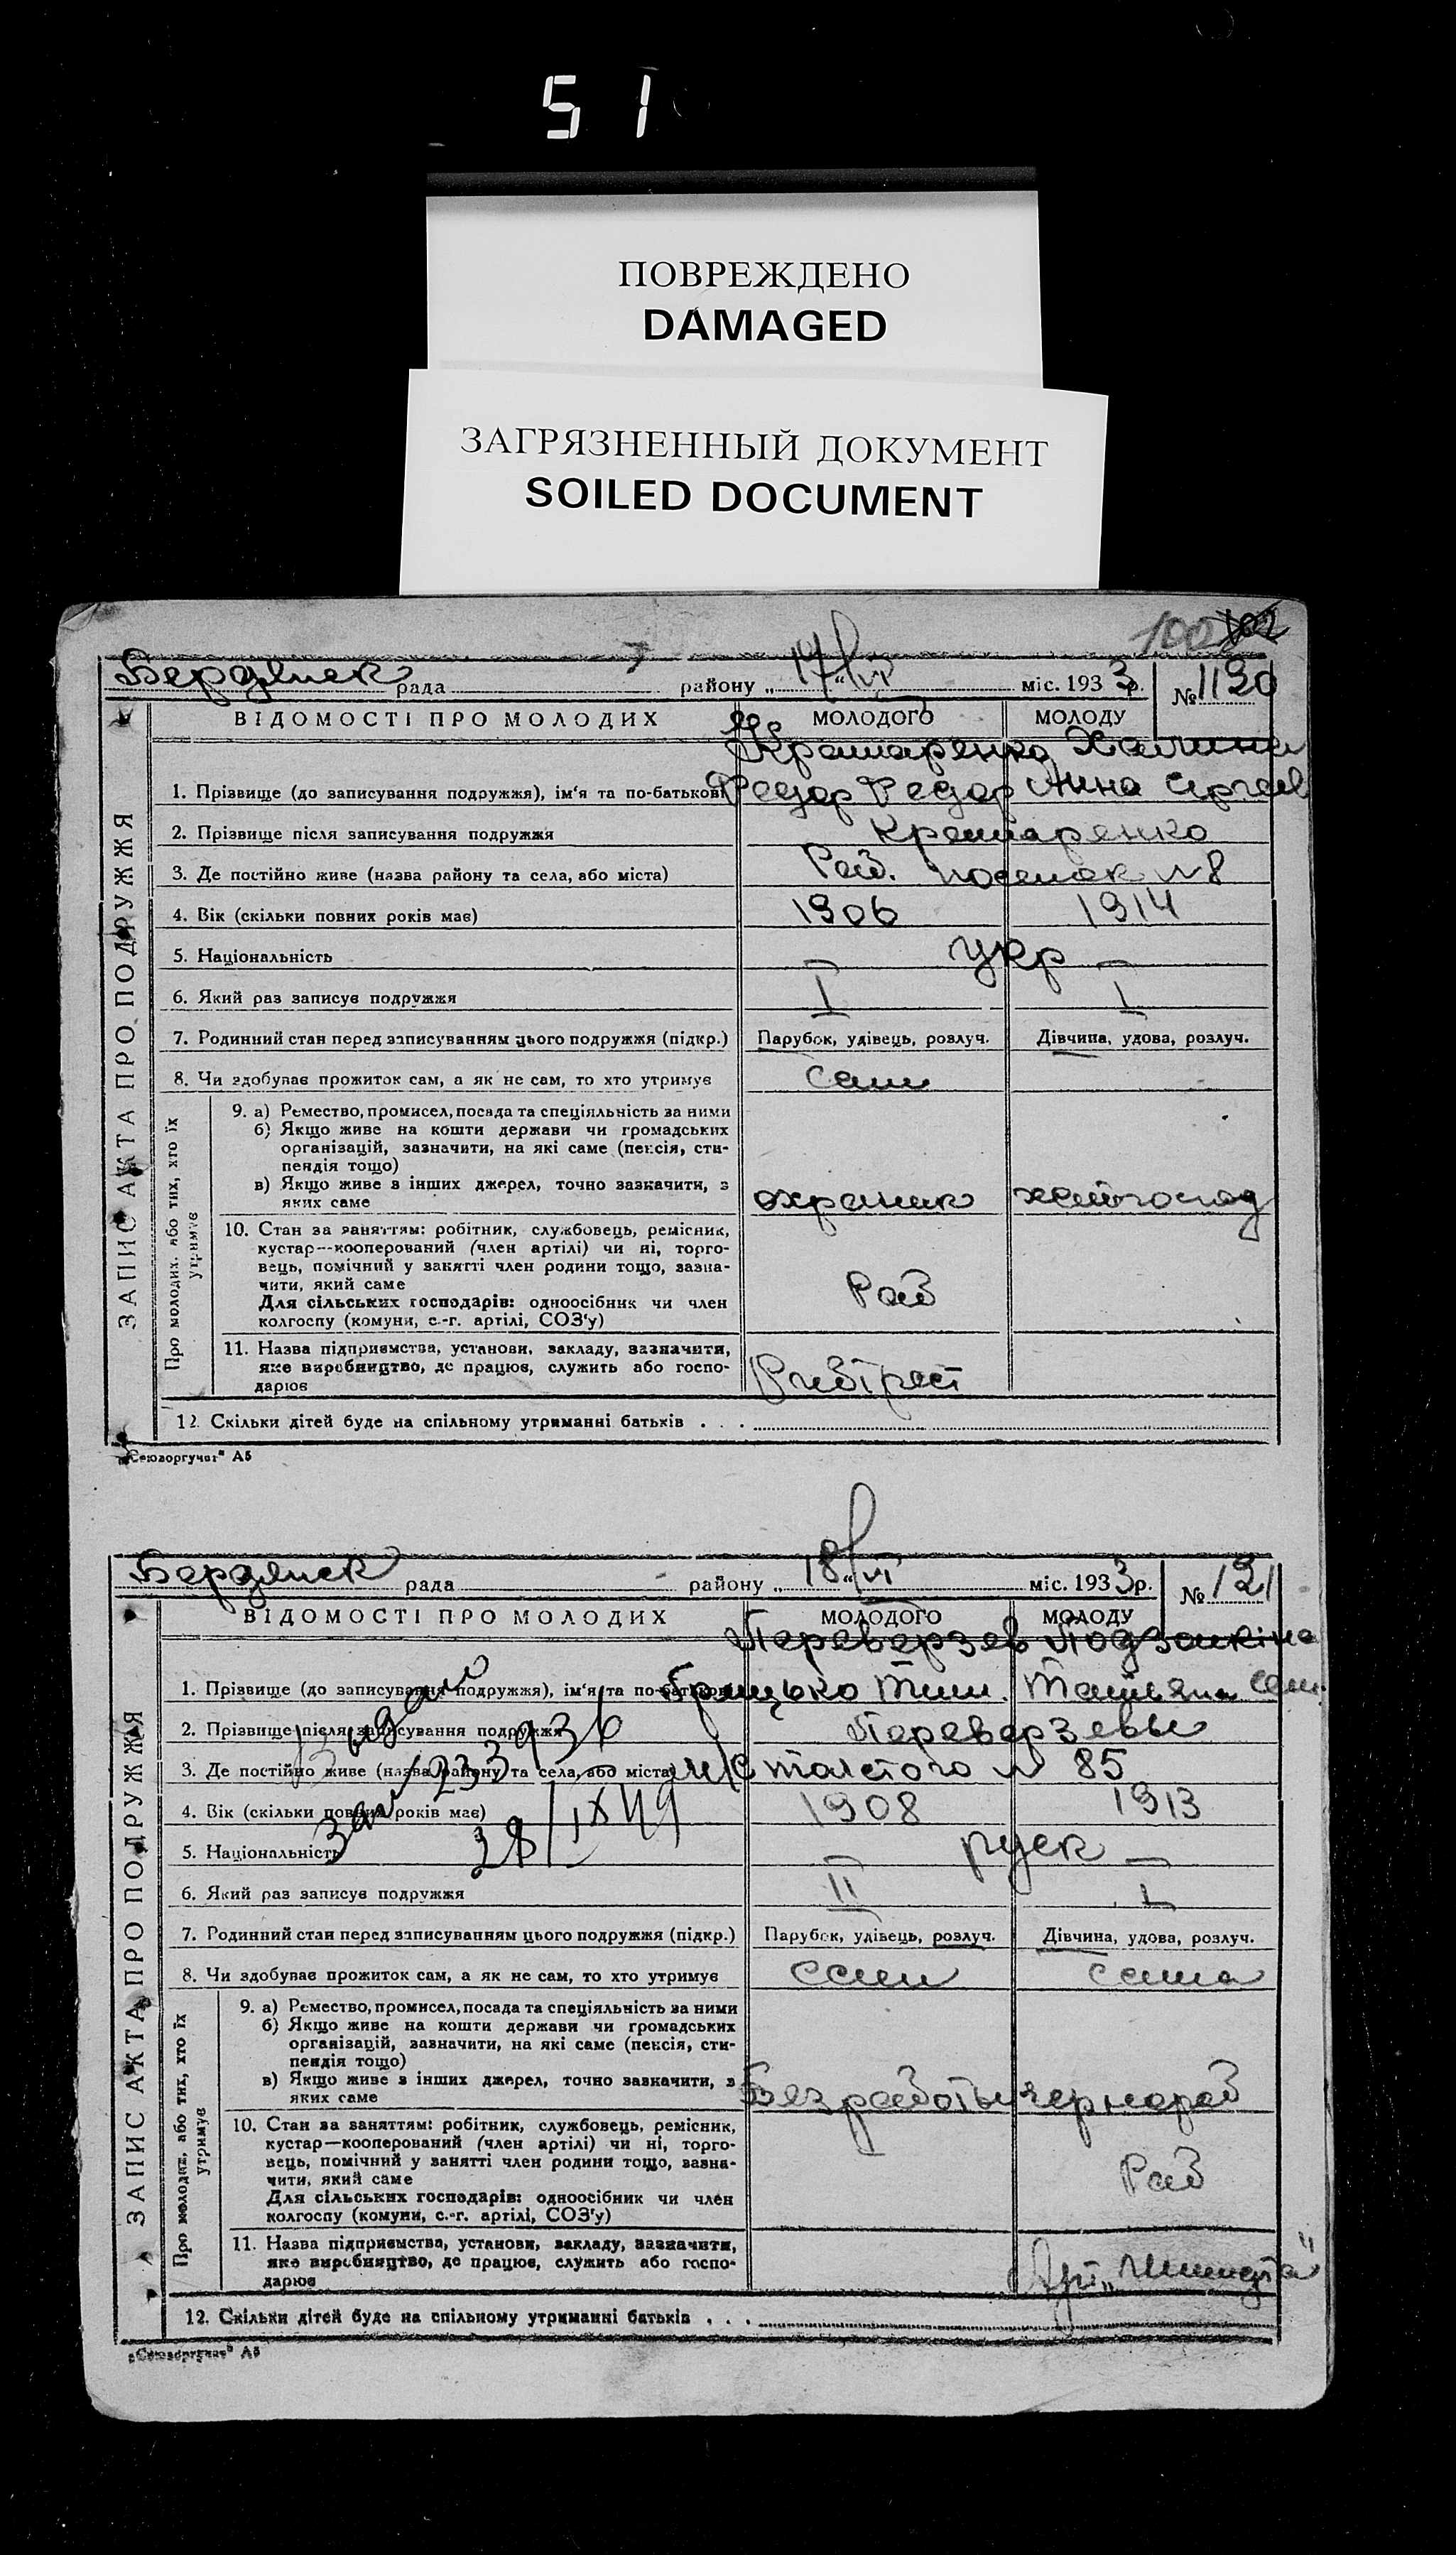 51
ПОВРЕЖДЕНО
DAMAGED
ЗАГРЯЗНЕННЫЙ ДОКУМЕНТ
SOILED DOCUMENT
100 102
Бердянск рада району „17/VI“ міс. 1933р. №1120
ЗАПИС АКТА ПРО ПОДРУЖЖЯ
ВІДОМОСТІ ПРО МОЛОДИХ МОЛОДОГО МОЛОДУ
Крамаренко
1. Прізвище (до записування подружжя), ім'я та по-батькові Федор Федор Анна Сергеев
2. Прізвище після записування подружжя Крамаренко
3. Де постійно живе (назва району та села, або міста) Раб. поселок №8
4. Вік (скільки повних років має) 1906 1914
5. Національність — укр —
6. Який раз записує подружжя I I
7. Родинний стан перед записуванням цього подружжя (підкр.) Парубок, удівець, розлуч. Дівчина, удова, розлуч.
8. Чи здобуває прожиток сам, а як не сам, то хто утримує сам
Про молодих, або тих, хто їх утримує
9. а) Ремество, промисел, посада та спеціяльність за ними
б) Якщо живе на кошти держави чи громадських
організацій, зазначити, на які саме (пенсія, сти-
пендія тощо)
в) Якщо живе з інших джерел, точно зазначити, з
яких саме охраник хатгоспод
10. Стан за заняттям: робітник, службовець, ремісник,
кустар—кооперований (член артілі) чи ні, торго-
вець, помічний у занятті член родини тощо, зазна-
чити, який саме Раб
Для сільських господарів: одноосібник чи член
колгоспу (комуни, с.-г. артілі, СОЗ'у)
11. Назва підприємства, установи, закладу, зазначити,
яке виробництво, де працює, служить або госпо-
дарює Рибтрест
12. Скільки дітей буде на спільному утриманні батьків . . .
„Союзоргучот“ А5
Бердянск рада району „18/VI“ міс. 1933р. №121
ЗАПИС АКТА ПРО ПОДРУЖЖЯ
ВІДОМОСТІ ПРО МОЛОДИХ МОЛОДОГО МОЛОДУ
Переверзев Подзамкіна
1. Прізвище (до записування подружжя), ім'я та по-батькові Грицько Тим. Татьяна Сем.
2. Прізвище після записування подружжя Переверзевы
3. Де постійно живе (назва району та села, або міста) Толстого № 85
4. Вік (скільки повних років має) 1908 1913
5. Національність — руск —
28/IX 49
6. Який раз записує подружжя II I
7. Родинний стан перед записуванням цього подружжя (підкр.) Парубок, удівець, розлуч. Дівчина, удова, розлуч.
8. Чи здобуває прожиток сам, а як не сам, то хто утримує сам сама
Про молодих, або тих, хто їх утримує
9. а) Ремество, промисел, посада та спеціяльність за ними
б) Якщо живе на кошти держави чи громадських
організацій, зазначити, на які саме (пенсія, сти-
пендія тощо)
в) Якщо живе з інших джерел, точно зазначити, з
яких саме Без работы чернораб
10. Стан за заняттям: робітник, службовець, ремісник,
кустар—кооперований (член артілі) чи ні, торго-
вець, помічний у занятті член родини тощо, зазна-
чити, який саме Раб
Для сільських господарів: одноосібник чи член
колгоспу (комуни, с.-г. артілі, СОЗ'у)
11. Назва підприємства, установи, закладу, зазначити,
яке виробництво, де працює, служить або госпо-
дарює
12. Скільки дітей буде на спільному утриманні батьків . . .
„Союзоргучот“ А5